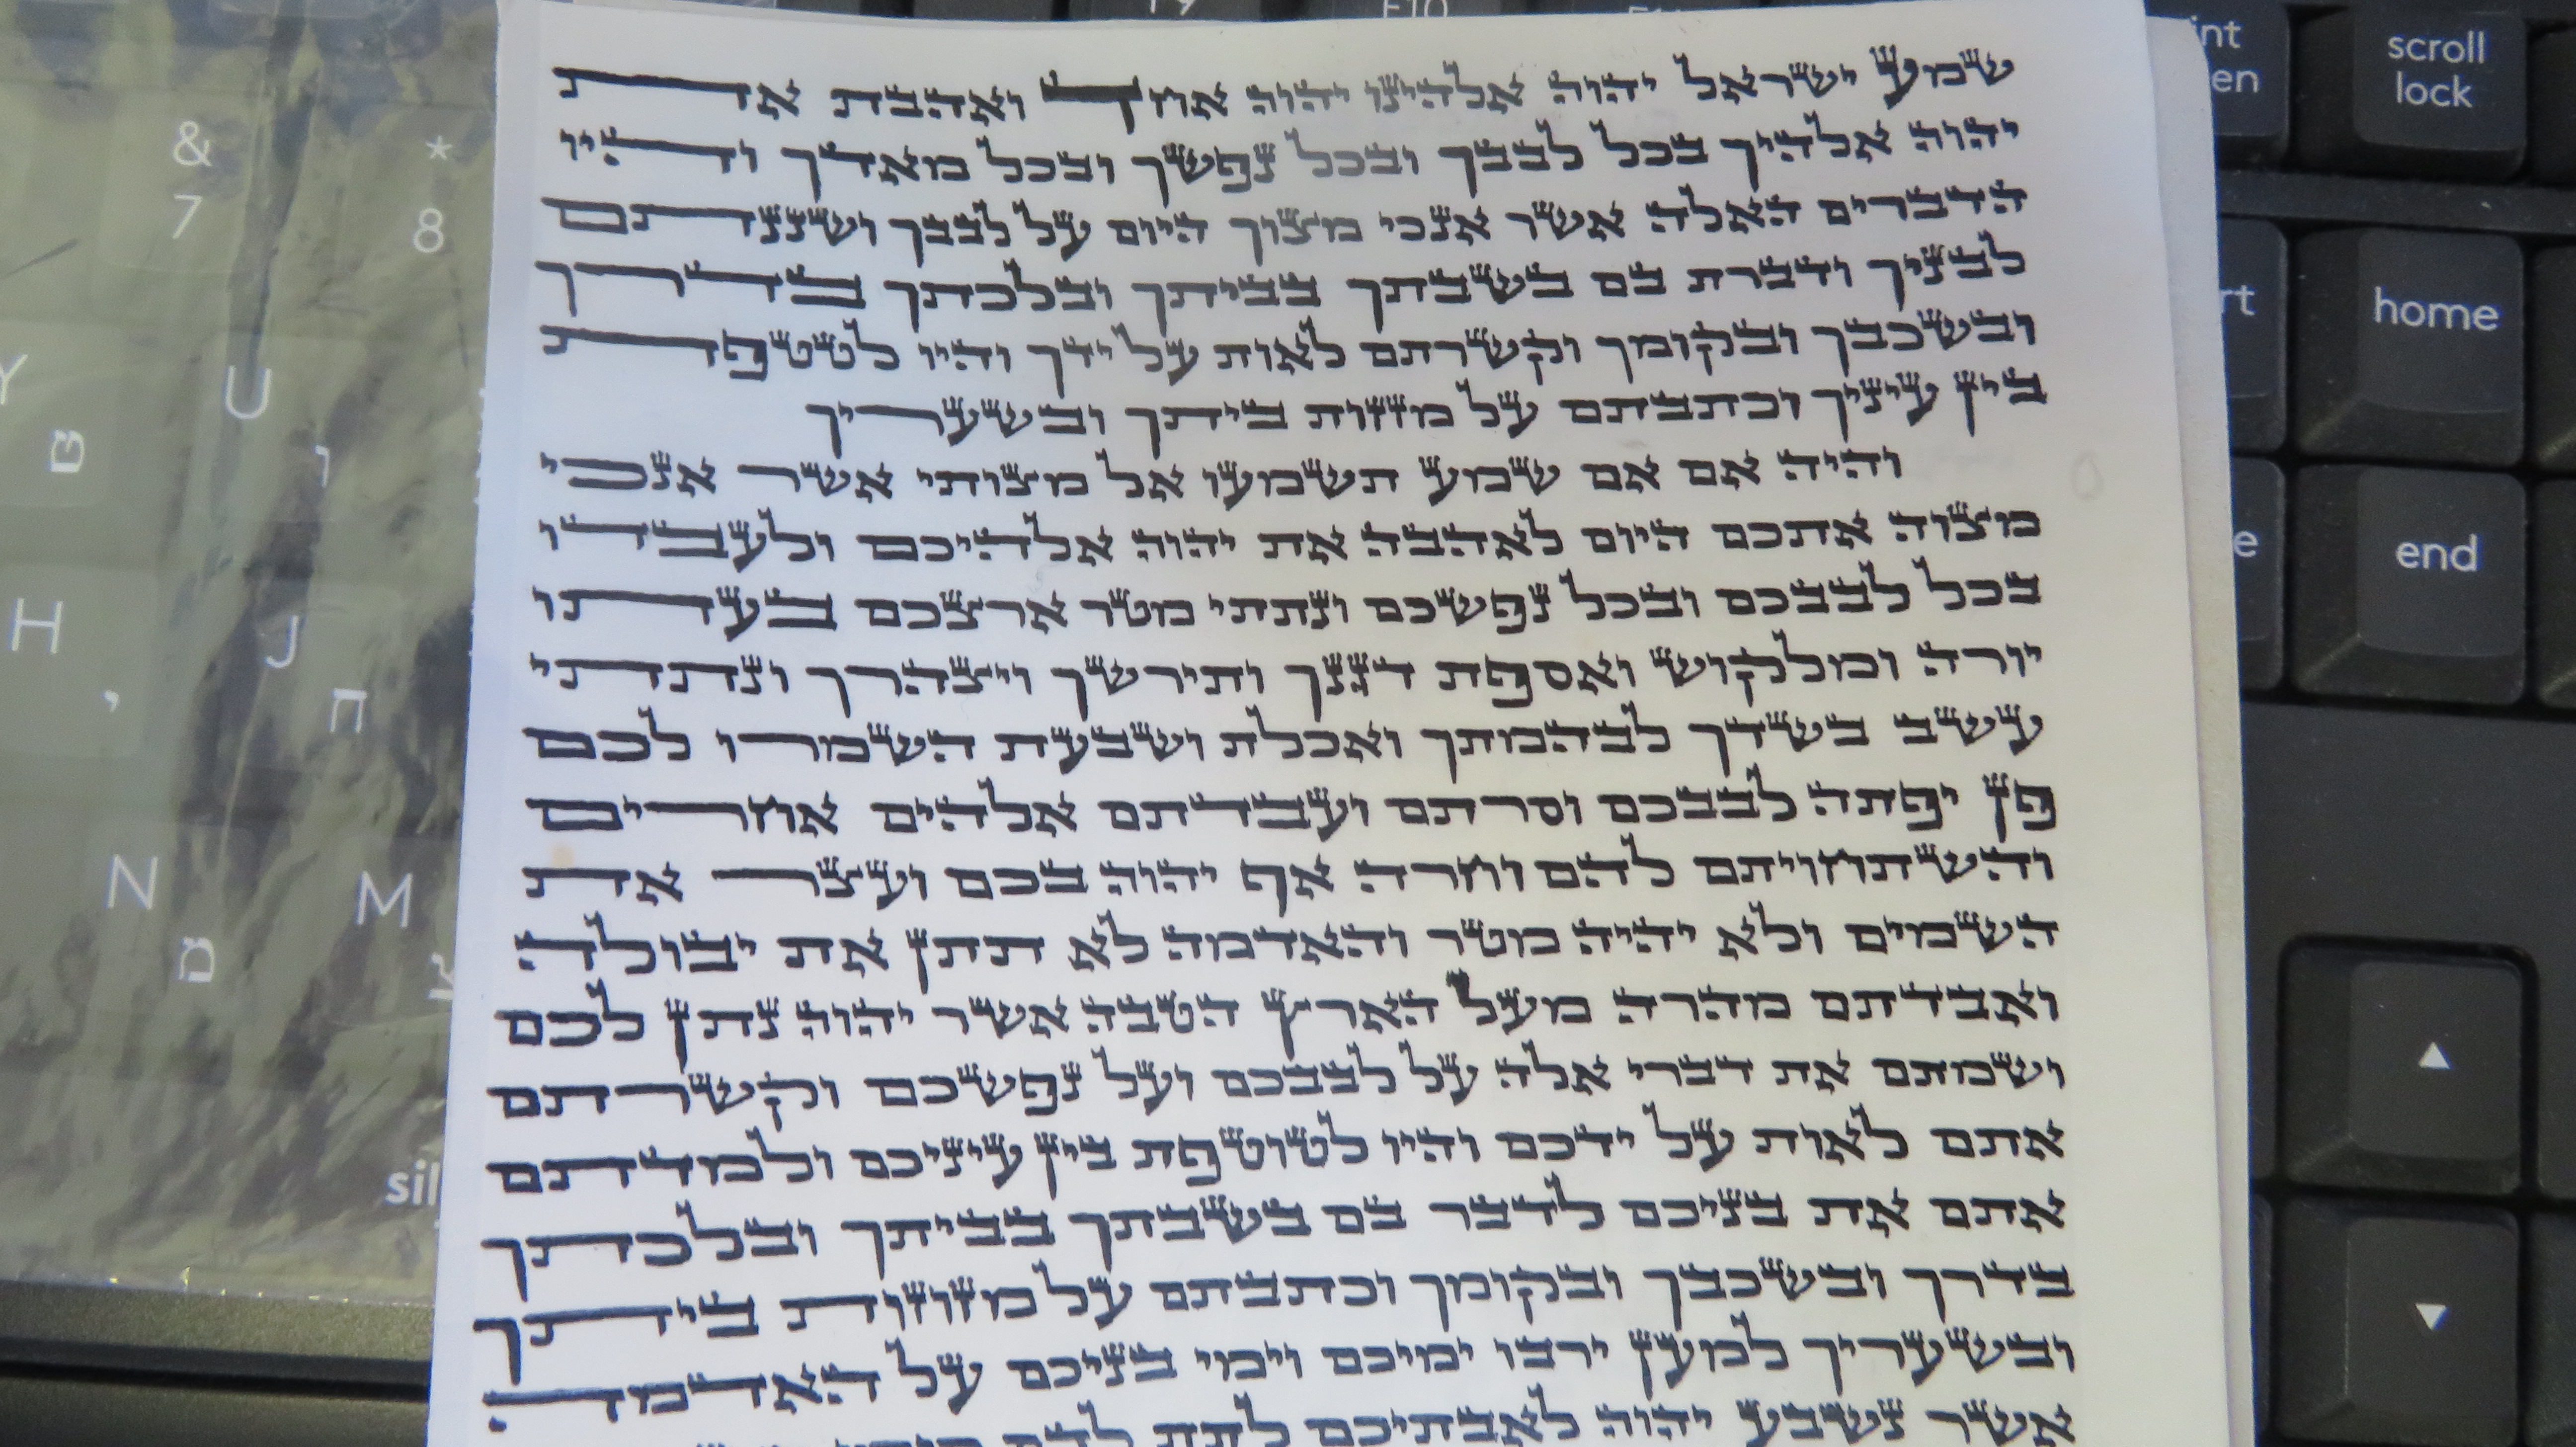 שמע ישראל יהוה אלהינו יהוה אחד ואהבת את
יהוה אלהיך בכל לבבך ובכל נפשך ובכל מאדך והיו
הדברים האלה אשר אנכי מצוך היום על לבבך ושננתם
לבניך ודברת בם בשבתך בביתך ובלכתך בדרך
ובשכבך ובקומך וקשרתם לאות על ידך והיו לטטפת
בין עיניך וכתבתם על מזזות ביתך ובשעריך
והיה אם אם שמע תשמעו אל מצותי אשר אנכי
מצוה אתכם היום לאהבה את יהוה אלהיכם ולעבדו
בכל לבבכם ובכל נפשכם ונתתי מטר ארצכם בעתו
יורה ומלקוש ואספת דגנך ותירשך ויצהרך ונתתי
עשב בשדך לבהמתך ואכלת ושבעת השמרו לכם
פן יפתה לבבכם וסרתם ועבדתם אלהים אחרים
והשתחויתם להם וחרה אף יהוה בכם ועצר את
השמים ולא יהיה מטר והאדמה לא תתן את יבולה
ואבדתם מהרה מעל הארץ הטבה אשר יהוה נתן לכם
ושמתם את דברי אלה על לבבכם ועל נפשכם וקשרתם
אתם לאות על ידכם והיו לטוטפת בין עיניכם ולמדתם
אתם את בניכם לדבר בם בשבתך בביתך ובלכתך
בדרך ובשכבך ובקומך וכתבתם על מזוזות ביתך
ובשעריך למען ירבו ימיכם וימי בניכם על האדמה
אשר נשבע יהוה לאבתיכם לתת להם
&
7
*
8
Y
U
H
J
ח
N
M
מ
scroll
lock
home
end